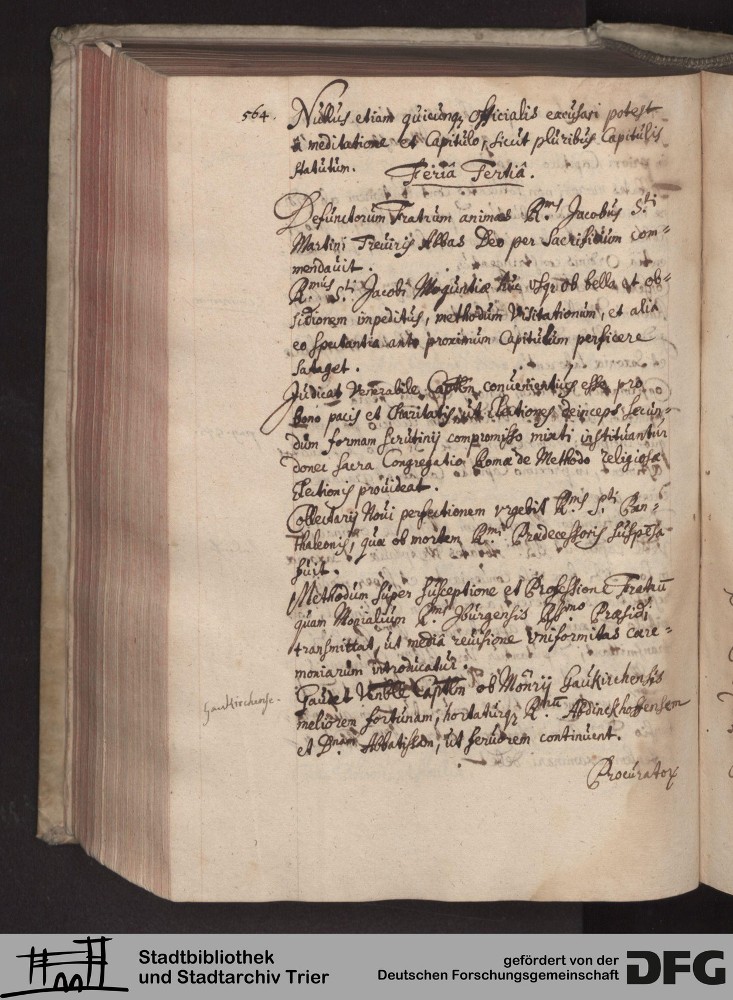 564. Nullus etiam quicunq; officialis excusari potest
a meditatione et Capitulo, sicut pluribus Capitulis
statutum.
Feriâ Tertiâ.
Defunctorum Fratrum animas R.mus Jacobus S.ti
Martini Treviris Abbas Deo per Sacrificium com=
mendavit.
R.mus S.ti Jacobi Moguntiæ huc usq; ob bella et ob=
sidionem impeditus, methodum Visitationum, et alia
eo spectantia ante proximum Capitulum perficere
sataget.
Judicat Venerabile Capitlm convenientius esse pro
bono pacis et Charitatis, ut Electiones deinceps secun=
dum formam scrutinij compromisso mixti instituantur
donec sacra Congregatio Romæ de Methodo religiosæ
Electionis provideat.
Collectarij Novi perfectionem urgebit R.mus S.ti Pan=
thaleonis, quæ ob mortem R.mi Prædecessoris suspensa
fuit.
Methodum super susceptione et Professione Fratrū
quam Monialium R.mus Iburgensis R.smo Præsidi
transmittat, ut mediâ revisione uniformitas cære=
moniarum introducatur.
Gaukirchense.
Gaudet Venble Captlm ob Monrij Gaukirchensis
meliorem fortunam, hortaturq; R.mum Abdinckhoffensem
et D.nam Abbatissam, ut fervorem continuent.
Procurator
Stadtbibliothek
und Stadtarchiv Trier
gefördert von der
Deutschen Forschungsgemeinschaft
DFG